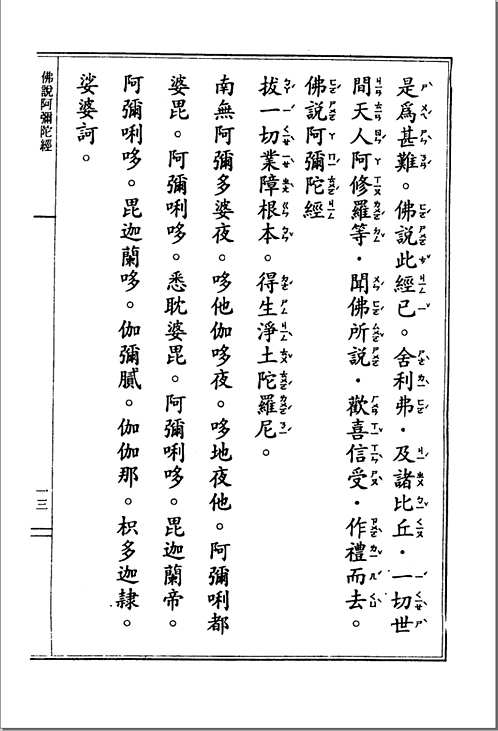 是爲甚難。佛說此經已。舍利弗・及諸比丘・一切世
間天人阿修羅等・聞佛所說・歡喜信受・作禮而去。
佛說阿彌陀經
拔一切業障根本。得生淨土陀羅尼。
南無阿彌多婆夜。哆他伽哆夜。哆地夜他。阿彌唎都
婆毘。阿彌唎哆。悉耽婆毘。阿彌唎哆。毘迦蘭帝。
阿彌唎哆。毘迦蘭哆。伽彌膩。伽伽那。枳多迦隸。
娑婆訶。
佛說阿彌陀經
一三